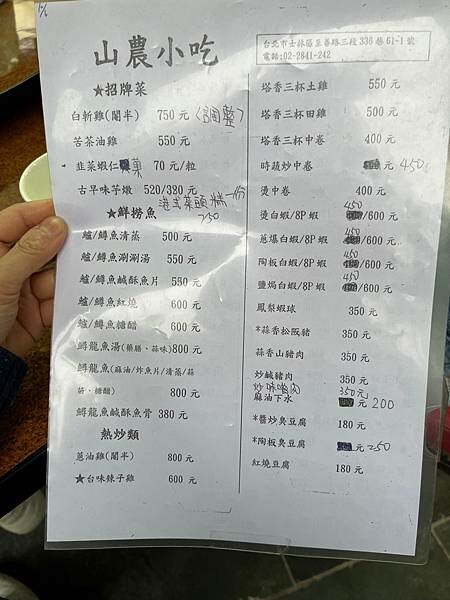 山農小吃
台北市士林區至善路三段336巷61-1號
電話:02-2841-242
★招牌菜
白斬雞(閹半) 750元(調整)
苦茶油雞 550元
韭菜蝦仁 菓 70元/粒
古早味芋燉 520/320元
港式菜頭糕一份
250
★鮮撈魚
鱸/鱒魚清蒸 500元
鱸/鱒魚涮涮湯 550元
鱸/鱒魚鹹酥魚片 550元
鱸/鱒魚紅燒 600元
鱸/鱒魚糖醋 600元
鱘龍魚湯(藥膳、蒜味)800元
鱘龍魚(麻油/炸魚片/清蒸/蒜
茄、糖醋) 800元
鱘龍魚鹹酥魚骨 380元
熱炒類
蔥油雞(閹半) 800元
★台味辣子雞 600元
塔香三杯土雞 550元
塔香三杯田雞 500元
塔香三杯中卷 400元
時蔬炒中卷 元 450
燙中卷 400元
燙白蝦/8P蝦 450/600元
蔥爆白蝦/8P蝦 450/600元
陶板白蝦/8P蝦 450/600元
鹽焗白蝦/8P蝦 450/600元
鳳梨蝦球 350元
*蒜香松阪豬 350元
蒜香山豬肉 350元
炒鹹豬肉 350元
炒咪嚕肉 350元
麻油下水 元 200
*醬炒臭豆腐 180元
*陶板臭豆腐 元 250
紅燒豆腐 180元